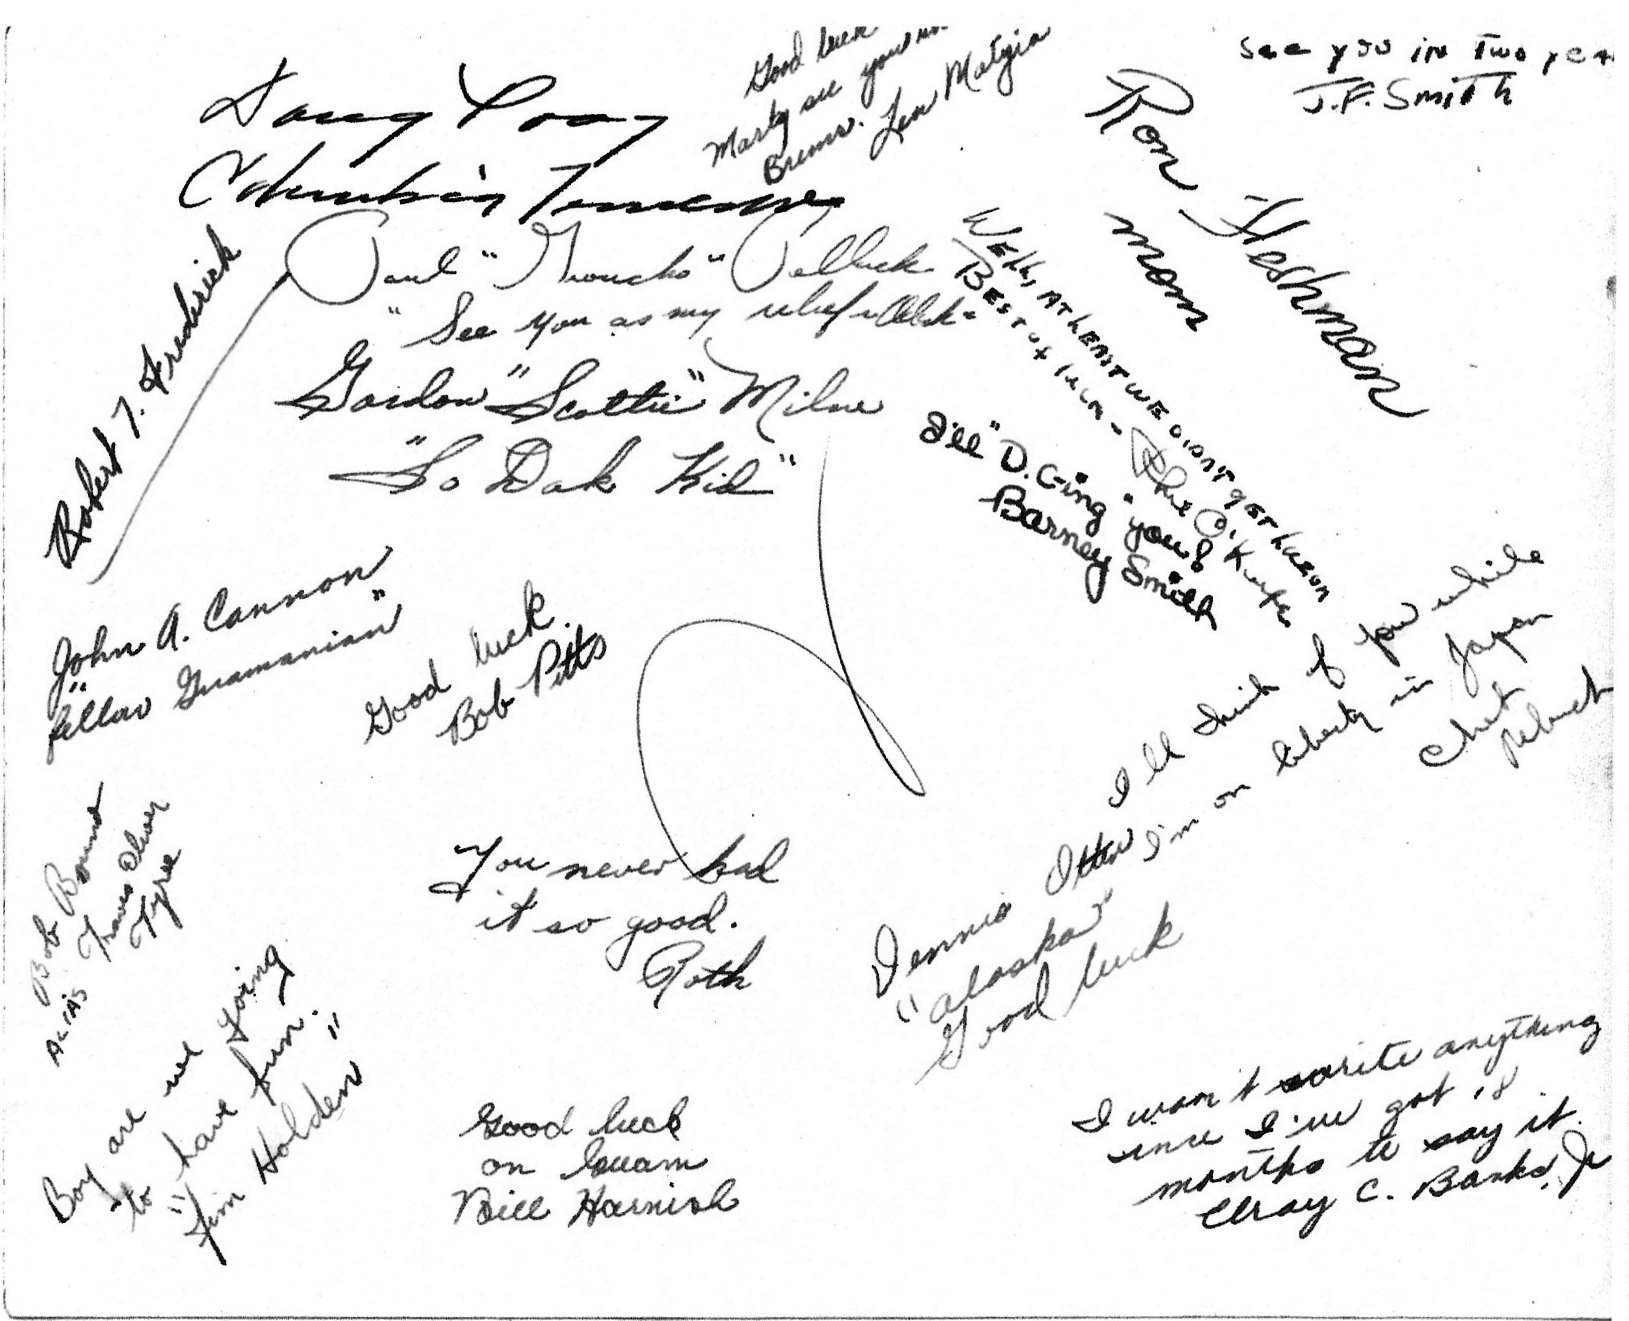 Good luck
Marty see you in
Brems. Len Matyja
See you in Two
J.F. Smith
Doug
Columbia Tennessee
Ron Fleshman
mom
Robert T. Frederick
Paul "Groucho"
"See you as my relief
Gordon "Scottie" Milne
"So Dak Kid"
Well, at least we didn't get
Best of luck - Phil O'Keefe
I'll "D.Ging" you!
Barney Smith
John A. Cannon
"fellow Guamanian"
Good luck.
Bob Pitts
I'll think of you while
I'm on liberty in Japan
Chet
Bob Bound
Alias Travis Oliver
Tyree
You never had
it so good.
Roth
Dennis Otten
"Alaska"
Good luck
Boy are we going
to have fun.
"Jim Holden"
Good luck
on Guam
Bill Harnish
I won't write anything
since I've got 18
months to say it.
Elray C. Banks, Jr